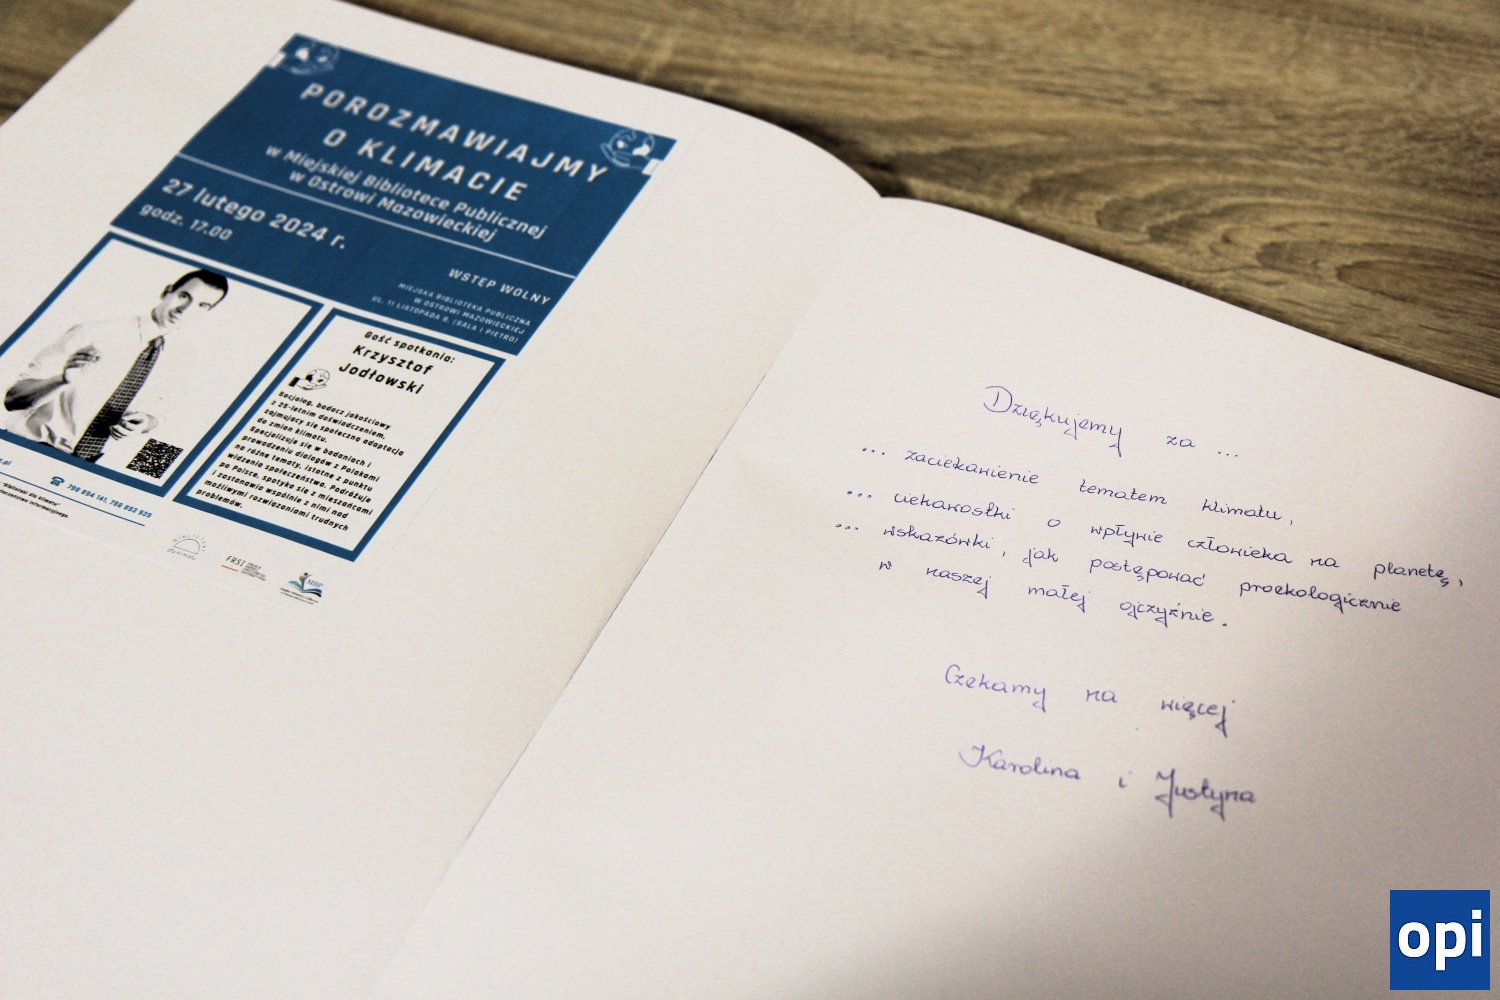 POROZMAWIAJMY
O KLIMACIE
w Miejskiej Bibliotece Publicznej
w Ostrowi Mazowieckiej
27 lutego 2024 r.
godz. 17.00
WSTĘP WOLNY
MIEJSKA BIBLIOTEKA PUBLICZNA
W OSTROWI MAZOWIECKIEJ
UL. 11 LISTOPADA 8, (SALA I PIĘTRO)
Gość spotkania:
Krzysztof
Jodłowski
Socjolog, badacz jakościowy
z 25-letnim doświadczeniem,
zajmujący się społeczną adaptacją
do zmian klimatu.
Specjalizuje się w badaniach i
prowadzeniu dialogów z Polakami
na różne tematy, istotne z punktu
widzenia społeczeństwa. Podróżuje
po Polsce, spotyka się z mieszkańcami
i zastanawia wspólnie z nimi nad
możliwymi rozwiązaniami trudnych
problemów.
FRSI
MBP
Dziękujemy za ...
... zaciekawienie tematem klimatu,
... ciekawostki o wpływie człowieka na planetę,
... wskazówki, jak postępować proekologicznie
w naszej małej ojczyźnie.
Czekamy na więcej
Karolina i Justyna
opi